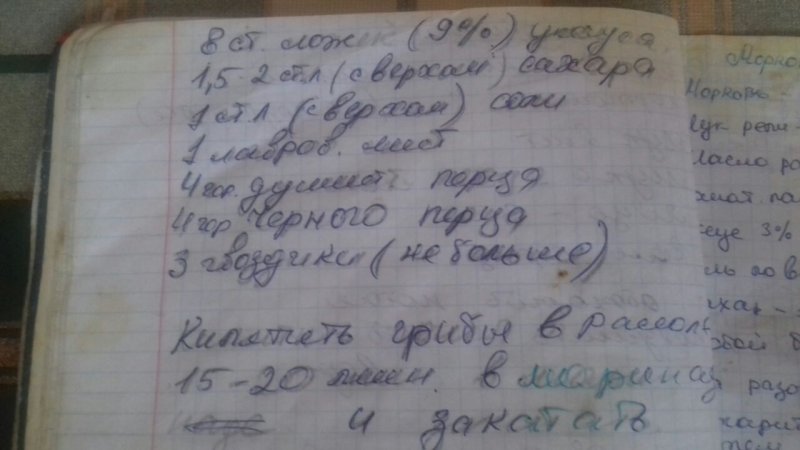 8 ст. ложек (9%) уксуса
1,5-2 ст.л (с верхом) сахара
1 ст.л (с верхом) соли
1 лавров. лист
4 гор. душист перца
4 гор. черного перца
3 гвоздики (не больше)
Кипятить грибы в рассоле
15-20 мин. в маринад
и закатать
Морко
Морковь -
Лук реп
3%